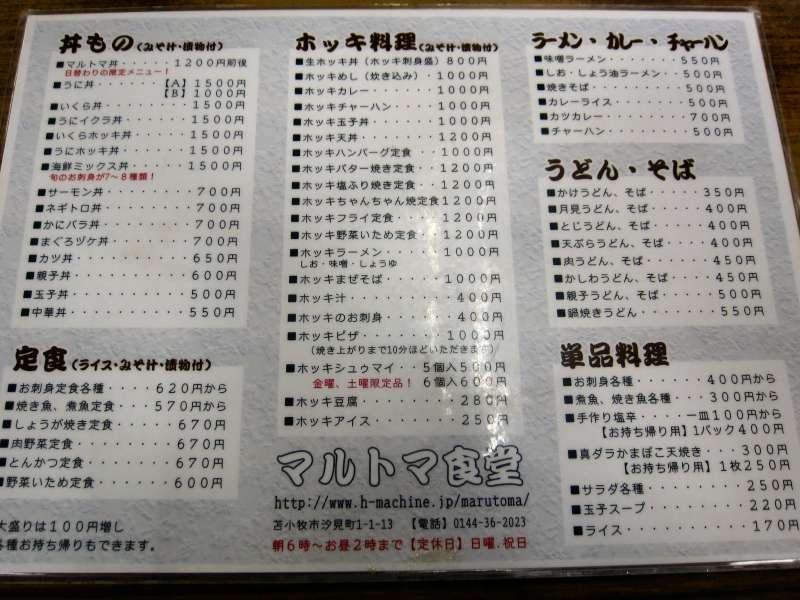 丼もの(みそ汁・漬物付)
■マルトマ丼・・・・・1200円前後
日替わりの限定メニュー！
■うに丼・・・・・・【A】1500円
【B】1000円
■いくら丼・・・・・・・1500円
■うにイクラ丼・・・・・1500円
■いくらホッキ丼・・・・1500円
■うにホッキ丼・・・・・1500円
■海鮮ミックス丼・・・・1500円
旬のお刺身が7～8種類！
■サーモン丼・・・・・・・700円
■ネギトロ丼・・・・・・・700円
■かにバラ丼・・・・・・・700円
■まぐろヅケ丼・・・・・・700円
■カツ丼・・・・・・・・・650円
■親子丼・・・・・・・・・600円
■玉子丼・・・・・・・・・500円
■中華丼・・・・・・・・・550円
定食(ライス・みそ汁・漬物付)
■お刺身定食各種・・・・620円から
■焼き魚、煮魚定食・・・570円から
■しょうが焼き定食・・・・670円
■肉野菜定食・・・・・・・670円
■とんかつ定食・・・・・・670円
■野菜いため定食・・・・・670円
大盛りは100円増し
各種お持ち帰りもできます。
ホッキ料理(みそ汁・漬物付)
■生ホッキ丼（ホッキ刺身盛）800円
■ホッキめし（炊き込み）・1000円
■ホッキカレー・・・・・・1000円
■ホッキチャーハン・・・・1000円
■ホッキ玉子丼・・・・・・1000円
■ホッキ天丼・・・・・・・1200円
■ホッキハンバーグ定食・・1000円
■ホッキバター焼き定食・・1200円
■ホッキ塩ふり焼き定食・・1200円
■ホッキちゃんちゃん焼定食1200円
■ホッキフライ定食・・・・1200円
■ホッキ野菜いため定食・・1200円
■ホッキラーメン・・・・・1000円
しお・味噌・しょうゆ
■ホッキまぜそば・・・・・1000円
■ホッキ汁・・・・・・・・・400円
■ホッキのお刺身・・・・・・400円
■ホッキピザ・・・・・・・1000円
（焼き上がりまで10分ほどいただきます）
■ホッキシュウマイ・・5個入500円
金曜、土曜限定品！ 6個入600円
■ホッキ豆腐・・・・・・・・280円
■ホッキアイス・・・・・・・250円
マルトマ食堂
http://www.h-machine.jp/marutoma/
苫小牧市汐見町1-1-13 【電話】0144-36-2023
朝6時～お昼2時まで【定休日】日曜.祝日
ラーメン・カレー・チャーハン
■味噌ラーメン・・・・・・550円
■しお・しょう油ラーメン・・500円
■焼きそば・・・・・・・・500円
■カレーライス・・・・・・500円
■カツカレー・・・・・・・700円
■チャーハン・・・・・・・500円
うどん・そば
■かけうどん、そば・・・・・350円
■月見うどん、そば・・・・400円
■とじうどん、そば・・・・400円
■天ぷらうどん、そば・・・400円
■肉うどん、そば・・・・・450円
■かしわうどん、そば・・・450円
■親子うどん、そば・・・・500円
■鍋焼きうどん・・・・・・550円
単品料理
■お刺身各種・・・・・400円から
■煮魚、焼き魚各種・・・300円から
■手作り塩辛・・・・一皿100円から
【お持ち帰り用】1パック400円
■真ダラかまぼこ天焼き・・・300円
【お持ち帰り用】1枚250円
■サラダ各種・・・・・・・250円
■玉子スープ・・・・・・・220円
■ライス・・・・・・・・・170円